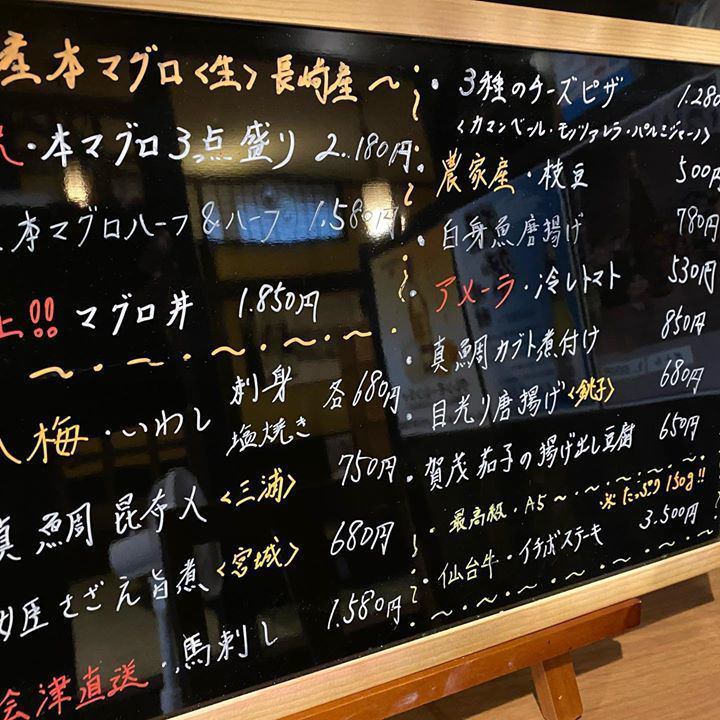 産本マグロ<生>長崎産〜
・本マグロ3点盛り 2.180円
本マグロハーフ&ハーフ 1.580円
上!! マグロ丼 1.850円
梅・いわし 刺身 各680円
塩焼き
真鯛昆布〆<三浦> 750円
産さざえ旨煮<宮城> 680円
会津直送・馬刺し 1.580円
・3種のチーズピザ 1.280
<カマンベール・モッツァレラ・パルミジャーノ>
・農家産・枝豆 500円
・白身魚唐揚げ 780円
・アメーラ・冷しトマト 530円
・真鯛カブト煮付け 850円
・目光り唐揚げ<銚子> 680円
・賀茂茄子の揚げ出し豆腐 650円
・最高級・A5〜 ※たっぷり150g!!
・仙台牛・イチボステーキ 3.500円